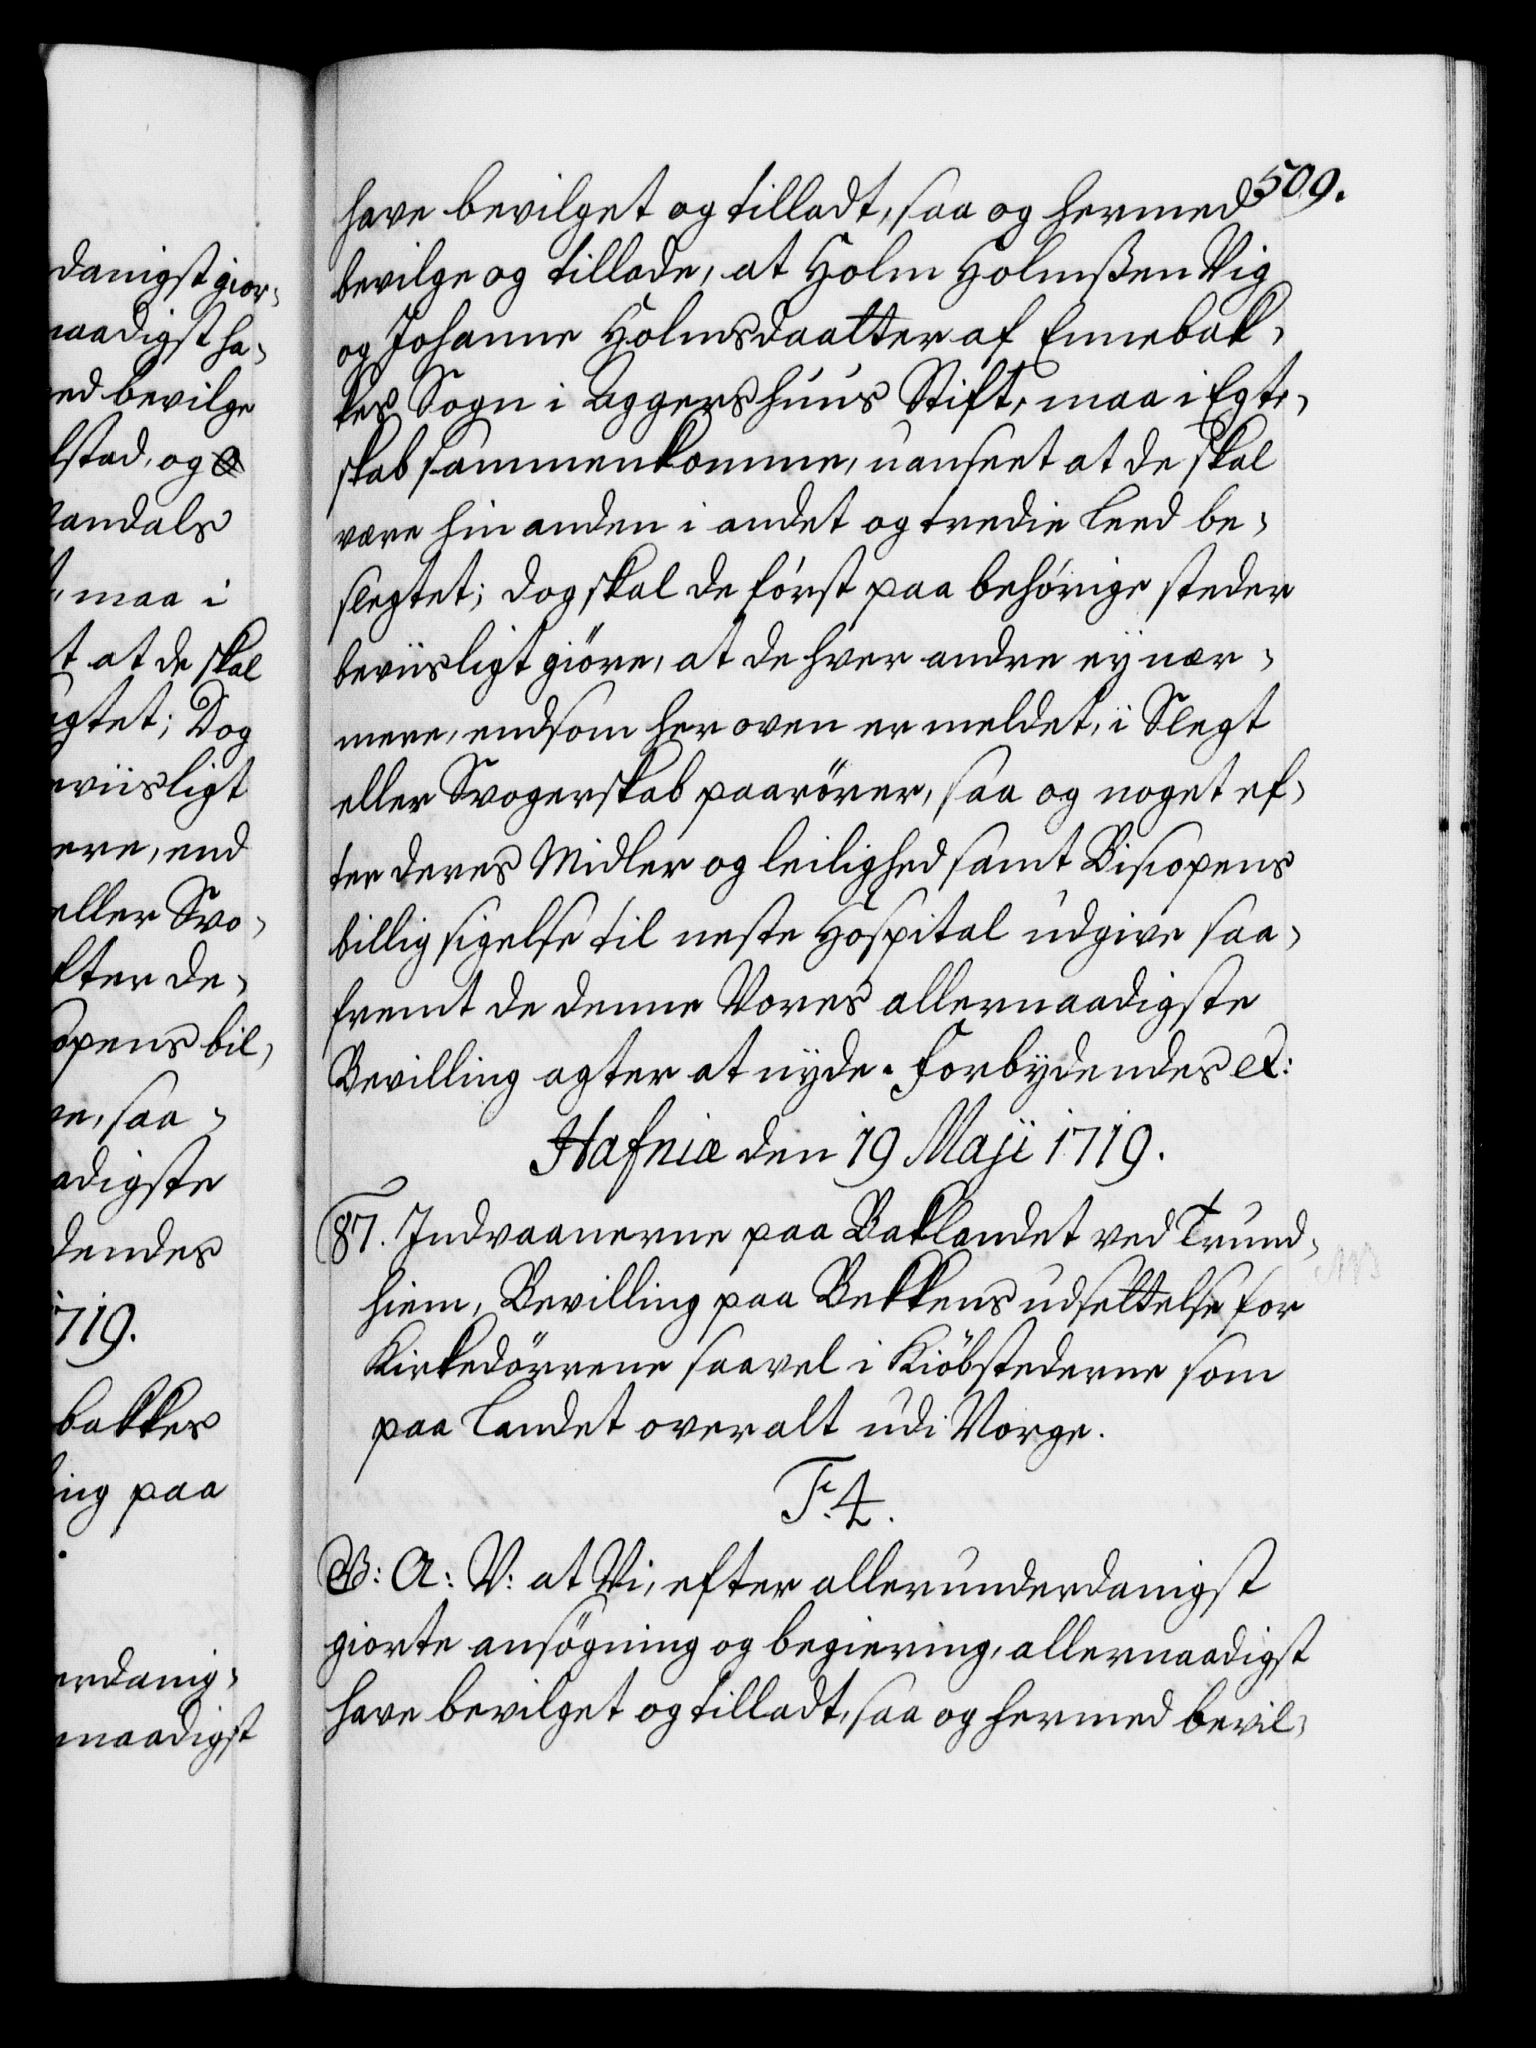 danigst gior-
naadigst ha-
ed bevilge
lstad, og
andals
maa i
t at de skal
gtet; Dog
eviisligt
ere, end
eller Svo-
fter de-
opens bil-
e, saa-
adigste
dendes
1719.
bakkes
ing paa
erdanig-
naadigst
509.
have bevilget og tilladt, saa og hermed
bevilge og tillade, at Holm Holmsßen Vig
og Johanne Holmsdaatter af Ennebak-
kes Sogn i Aggershuus Stift, maa i Egte-
skab sammenkomme, uanseet at de skal
være hin anden i andet og tredie Leed be-
slegtet; dog skal de først paa behørige steder
beviisligt giöre, at de hver andre ej nær-
mere, end som her oven er meldet, i Slegt
eller Svogerskab paarörer, saa og noget ef-
ter deres Midler og leilighed samt Biscopens
billig sigelse til neste Hospital udgive saa-
fremt de denne Vores allernaadigste
Bevilling agter at nyde. Forbydendes etc:
Hafniæ den 19 Maji 1719.
87. Indvaanerne paa Baklandet ved Trund-
hiem, Bevilling paa Bekkens udsettelse for
Kirkedörrene saavel i Kiöbstederne som
paa Landet over alt udi Norge.
F. 4.
G: A: V: at Vi, efter allerunderdanigst
giorte ansögning og begiering, allernaadigst
have bevilget og tilladt, saa og hermed bevil-